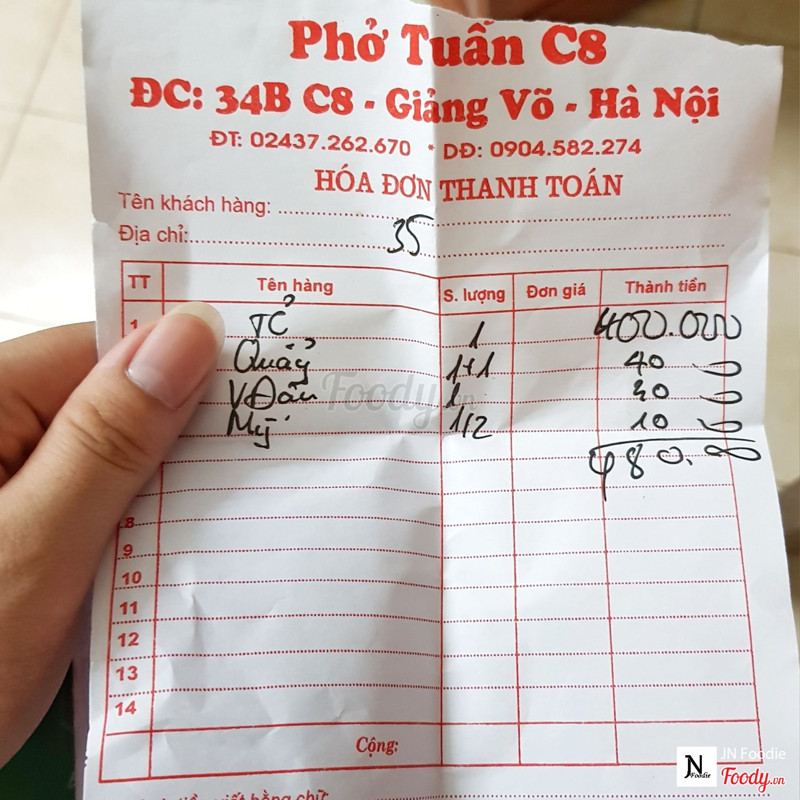 Phở Tuấn C8
ĐC: 34B C8 - Giảng Võ - Hà Nội
ĐT: 02437.262.670 * DĐ: 0904.582.274
HÓA ĐƠN THANH TOÁN
Tên khách hàng:
Địa chỉ: 35
TT Tên hàng S. lượng Đơn giá Thành tiền
1 1 400.000
Quẩy 1+1 40
V Đầu 1 30
Mỳ 1/2 10
480.00
8
9
10
11
12
13
14
Cộng:
Foody.vn
JN Foodie
JN Foodie
Foody.vn